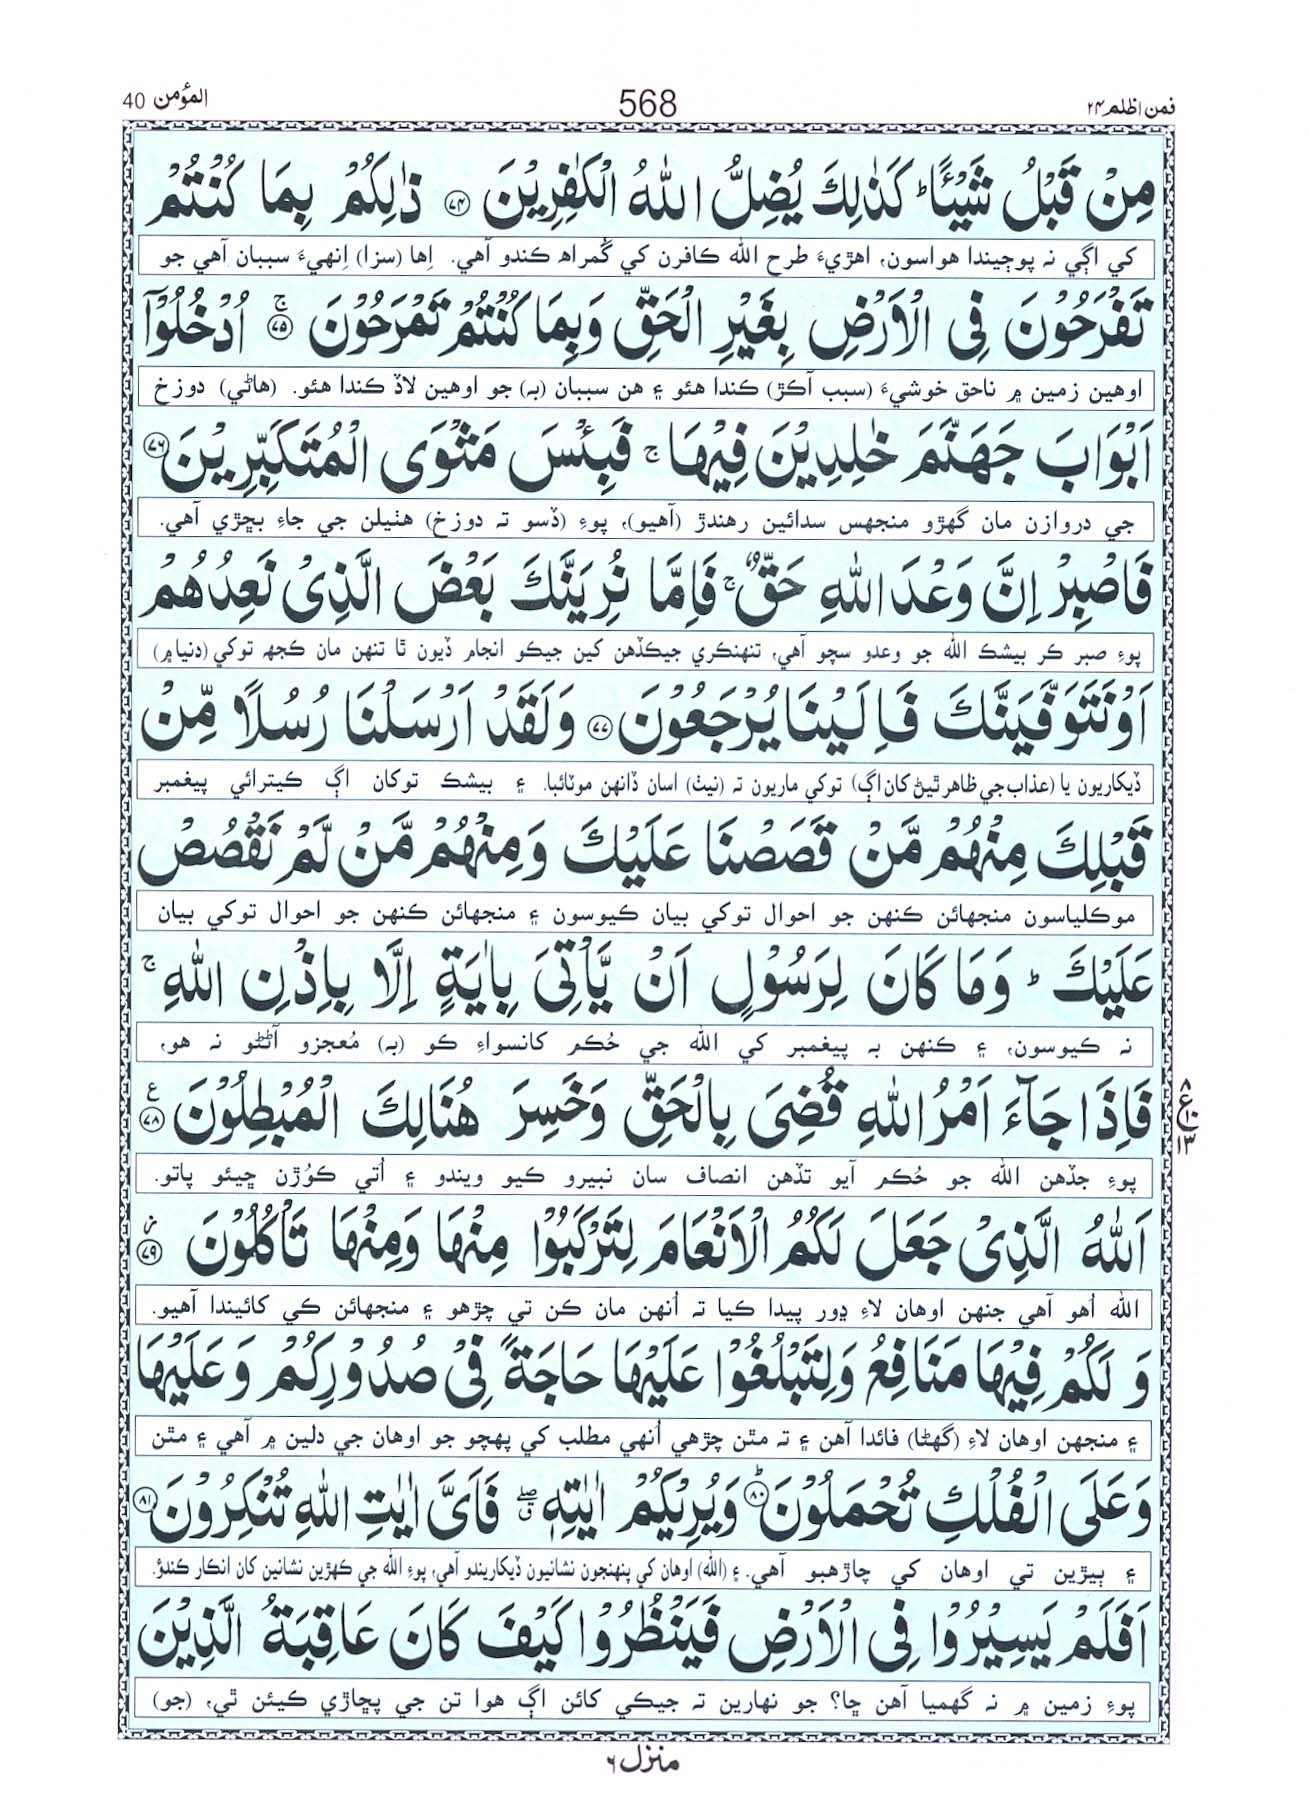 فمن اظلم ۲۴ 568 المؤمن 40
مِنْ قَبْلُ شَيْـًٔا ؕ كَذٰلِكَ يُضِلُّ اللّٰهُ الْكٰفِرِيْنَ ﴿۷۴﴾ ذٰلِكُمْ بِمَا كُنْتُمْ
کي اڳي نہ پوڄيندا هواسون، اهڙيءَ طرح الله ڪافرن کي گُمراھ ڪندو آهي. اِها (سزا) اِنهيءَ سببان آهي جو
تَفْرَحُوْنَ فِى الْاَرْضِ بِغَيْرِ الْحَقِّ وَبِمَا كُنْتُمْ تَمْرَحُوْنَ ﴿۷۵﴾ ۚ اُدْخُلُوْۤا
اوهين زمين ۾ ناحق خوشيءَ (سبب آڪڙ) ڪندا هئو ۽ هن سببان (بہ) جو اوهين لاڏ ڪندا هئو. (هاڻي) دوزخ
اَبْوَابَ جَهَنَّمَ خٰلِدِيْنَ فِيْهَا ۚ فَبِئْسَ مَثْوَى الْمُتَكَبِّرِيْنَ ﴿۷۶﴾
جي دروازن مان گهڙو منجهس سدائين رهندڙ (آهيو)، پوءِ (ڏسو تہ دوزخ) هٺيلن جي جاءِ بڇڙي آهي.
فَاصْبِرْ اِنَّ وَعْدَ اللّٰهِ حَقٌّ ۚ فَاِمَّا نُرِيَنَّكَ بَعْضَ الَّذِىْ نَعِدُهُمْ
پوءِ صبر ڪر بيشڪ الله جو وعدو سچو آهي، تنهنڪري جيڪڏهن کين جيڪو انجام ڏيون ٿا تنهن مان ڪجهہ توکي (دنيا۾)
اَوْ نَتَوَفَّيَنَّكَ فَاِلَيْنَا يُرْجَعُوْنَ ﴿۷۷﴾ وَلَقَدْ اَرْسَلْنَا رُسُلًا مِّنْ
ڏيکاريون يا (عذاب جي ظاهر ٿيڻ کان اڳ) توکي ماريون تہ (نيٺ) اسان ڏانهن موٽائبا. ۽ بيشڪ توکان اڳ ڪيترائي پيغمبر
قَبْلِكَ مِنْهُمْ مَّنْ قَصَصْنَا عَلَيْكَ وَمِنْهُمْ مَّنْ لَّمْ نَقْصُصْ
موڪلياسون منجهائن ڪنهن جو احوال توکي بيان ڪيوسون ۽ منجهائن ڪنهن جو احوال توکي بيان
عَلَيْكَ ؕ وَمَا كَانَ لِرَسُوْلٍ اَنْ يَّاْتِىَ بِاٰيَةٍ اِلَّا بِاِذْنِ اللّٰهِ ۚ
نہ ڪيوسون، ۽ ڪنهن بہ پيغمبر کي الله جي حُڪم کانسواءِ ڪو (بہ) مُعجزو آڻڻو نہ هو،
فَاِذَا جَآءَ اَمْرُ اللّٰهِ قُضِىَ بِالْحَقِّ وَخَسِرَ هُنَالِكَ الْمُبْطِلُوْنَ ﴿۷۸﴾ ع
۸ ع ۱۳
پوءِ جڏهن الله جو حُڪم آيو تڏهن انصاف سان نبيرو ڪيو ويندو ۽ اُتي ڪوُڙن ڇيئو پاتو.
اَللّٰهُ الَّذِىْ جَعَلَ لَكُمُ الْاَنْعَامَ لِتَرْكَبُوْا مِنْهَا وَمِنْهَا تَاْكُلُوْنَ ﴿۷۹﴾ ز
الله اُهو آهي جنهن اوهان لاءِ ڍور پيدا ڪيا تہ اُنهن مان ڪن تي چڙهو ۽ منجهائن ڪي کائيندا آهيو.
وَلَكُمْ فِيْهَا مَنَافِعُ وَلِتَبْلُغُوْا عَلَيْهَا حَاجَةً فِىْ صُدُوْرِكُمْ وَعَلَيْهَا
۽ منجهن اوهان لاءِ (گهڻا) فائدا آهن ۽ تہ مٿن چڙهي اُنهي مطلب کي پهچو جو اوهان جي دلين ۾ آهي ۽ مٿن
وَعَلَى الْفُلْكِ تُحْمَلُوْنَ ﴿۸۰﴾ ؕ وَيُرِيْكُمْ اٰيٰتِهٖ ۖ ق فَاَىَّ اٰيٰتِ اللّٰهِ تُنْكِرُوْنَ ﴿۸۱﴾
۽ ٻيڙين تي اوهان کي چاڙهبو آهي. ۽ (الله) اوهان کي پنهنجون نشانيون ڏيکاريندو آهي، پوءِ الله جي ڪهڙين نشانين کان انڪار ڪندؤ.
اَفَلَمْ يَسِيْرُوْا فِى الْاَرْضِ فَيَنْظُرُوْا كَيْفَ كَانَ عَاقِبَةُ الَّذِيْنَ
پوءِ زمين ۾ نہ گهميا آهن ڇا؟ جو نهارين تہ جيڪي کائن اڳ هوا تن جي پڇاڙي ڪيئن ٿي، (جو)
منزل ٦